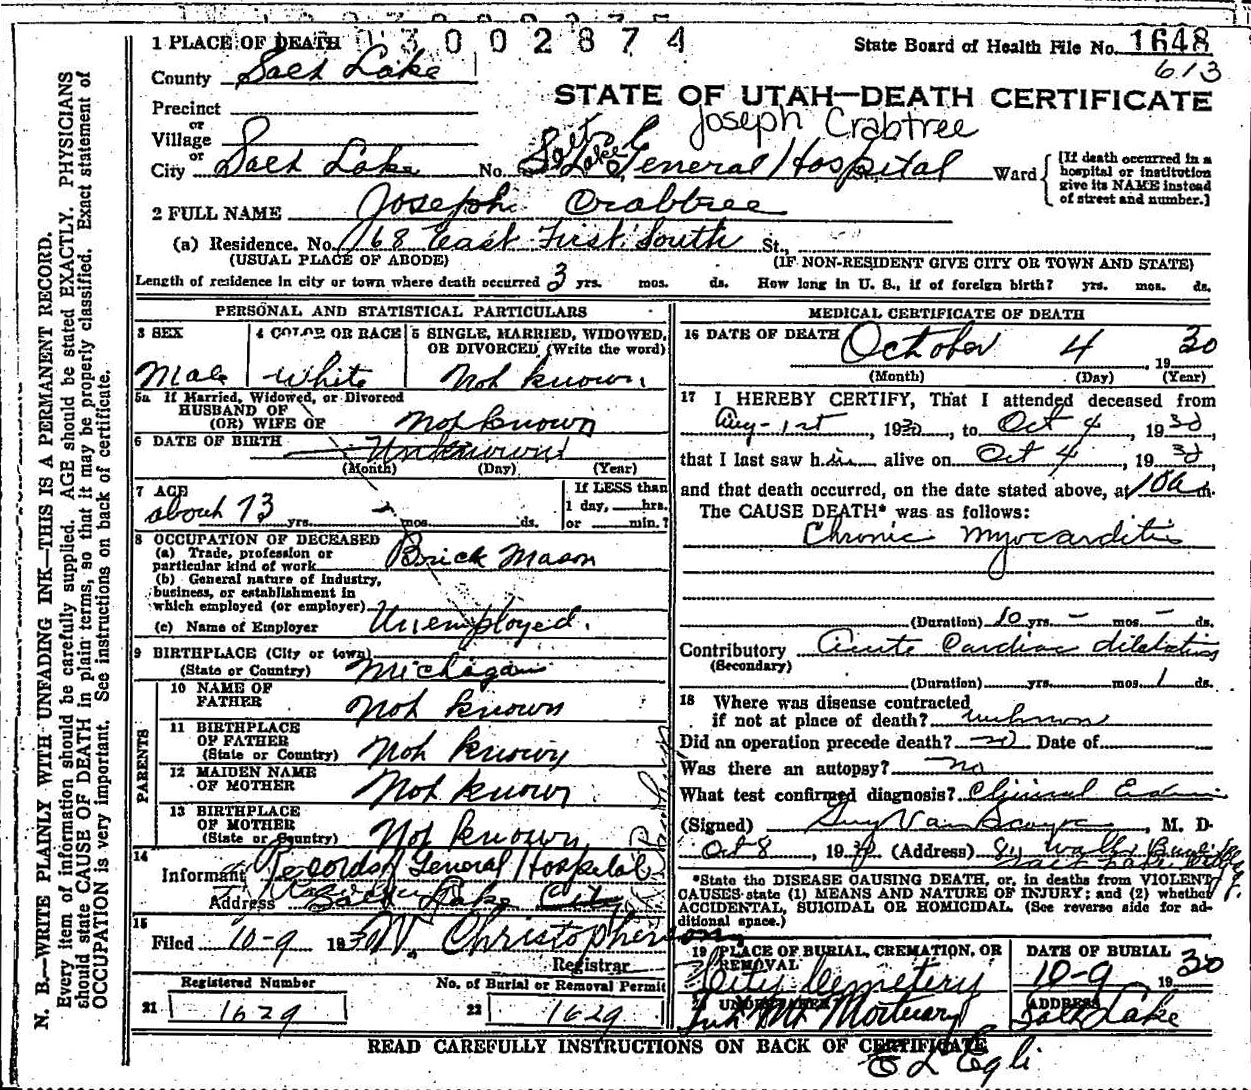 03002874
1 PLACE OF DEATH
State Board of Health File No. 1648
613
County Salt Lake
STATE OF UTAH—DEATH CERTIFICATE
Precinct
or
Joseph Crabtree
Village
or
City Salt Lake No. Salt Lake General Hospital St., Ward
[If death occurred in a hospital or institution give its NAME instead of street and number.]
2 FULL NAME Joseph Crabtree
(a) Residence. No. 168 East First South St.,
(USUAL PLACE OF ABODE) (IF NON-RESIDENT GIVE CITY OR TOWN AND STATE)
Length of residence in city or town where death occurred 3 yrs. mos. ds. How long in U. S., if of foreign birth? yrs. mos. ds.
PERSONAL AND STATISTICAL PARTICULARS
3 SEX
4 COLOR OR RACE
5 SINGLE, MARRIED, WIDOWED,
OR DIVORCED (Write the word)
Male White Not known
5a If Married, Widowed, or Divorced
HUSBAND OF
(OR) WIFE OF Not known
6 DATE OF BIRTH Unknown
(Month) (Day) (Year)
7 AGE
about 73 yrs. - mos. ds.
If LESS than
1 day, hrs.
or min.?
8 OCCUPATION OF DECEASED
(a) Trade, profession or
particular kind of work Brick Mason
(b) General nature of industry,
business, or establishment in
which employed (or employer)
(c) Name of Employer Unemployed.
9 BIRTHPLACE (City or town)
(State or Country) Michigan
PARENTS
10 NAME OF
FATHER Not known
11 BIRTHPLACE
OF FATHER
(State or Country) Not known
12 MAIDEN NAME
OF MOTHER Not known
13 BIRTHPLACE
OF MOTHER
(State or Country) Not known
14
Informant Records General Hospital
Address Salt Lake City
15
Filed 10-9 1930 W. Christopherson
Registrar
Registered Number No. of Burial or Removal Permit
21 1629 22 1629
MEDICAL CERTIFICATE OF DEATH
16 DATE OF DEATH October 4 1930
(Month) (Day) (Year)
17 I HEREBY CERTIFY, That I attended deceased from
Aug-1st, 1930, to Oct 4, 1930,
that I last saw him alive on Oct 4, 1930,
and that death occurred, on the date stated above, at 10a m.
The CAUSE DEATH* was as follows:
Chronic Myocarditis
(Duration) 10 yrs. - mos. - ds.
Contributory Acute Cardiac dilatation
(Secondary)
(Duration) yrs. mos. 1 ds.
18 Where was disease contracted
if not at place of death? unknown
Did an operation precede death? no Date of
Was there an autopsy? no
What test confirmed diagnosis? Clinical
(Signed) Guy Van Scoyoc, M. D.
Oct 8, 1930 (Address)
*State the DISEASE CAUSING DEATH, or, in deaths from VIOLENT
CAUSES state (1) MEANS AND NATURE OF INJURY; and (2) whether
ACCIDENTAL, SUICIDAL OR HOMICIDAL. (See reverse side for ad-
ditional space.)
19 PLACE OF BURIAL, CREMATION, OR
REMOVAL
City Cemetery
DATE OF BURIAL
10-9 1930
UNDERTAKER
Mortuary
ADDRESS
Salt Lake
READ CAREFULLY INSTRUCTIONS ON BACK OF CERTIFICATE
E L Egli
N. B.—WRITE PLAINLY WITH UNFADING INK—THIS IS A PERMANENT RECORD.
Every item of information should be carefully supplied. AGE should be stated EXACTLY. PHYSICIANS
should state CAUSE OF DEATH in plain terms, so that it may be properly classified. Exact statement of
OCCUPATION is very important. See instructions on back of certificate.